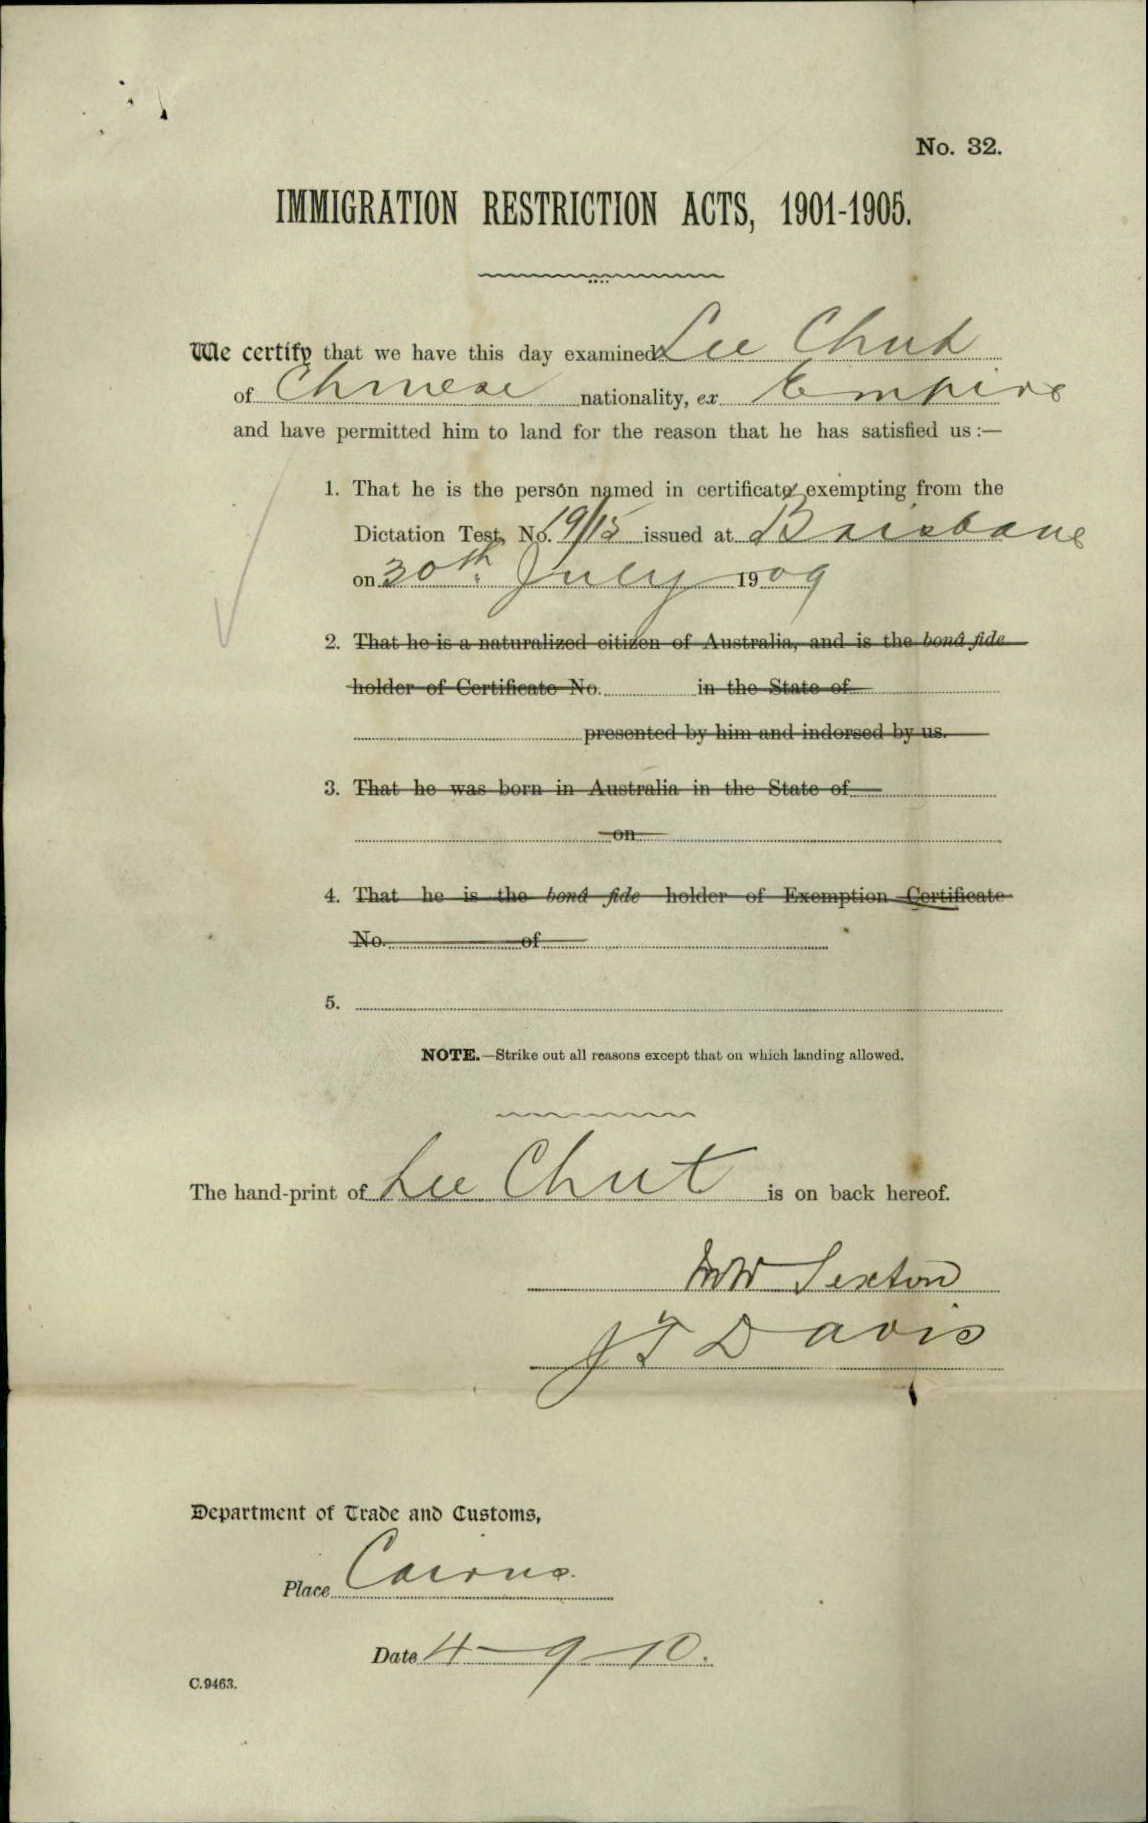 No. 32.
IMMIGRATION RESTRICTION ACTS, 1901-1905.
We certify that we have this day examined Lee Chut
of Chinese nationality, ex Empire
and have permitted him to land for the reason that he has satisfied us :—
1. That he is the person named in certificate exempting from the
Dictation Test, No. 19/15 issued at Brisbane
on 30th July 1909
2. That he is a naturalized citizen of Australia, and is the bonâ fide
holder of Certificate No. in the State of
presented by him and indorsed by us.
3. That he was born in Australia in the State of
on
4. That he is the bonâ fide holder of Exemption Certificate
No. of
5.
NOTE.—Strike out all reasons except that on which landing allowed.
The hand-print of Lee Chut is on back hereof.
Sexton
JT Davis
Department of Trade and Customs,
Place Cairns.
Date 4-9-10.
C.9463.